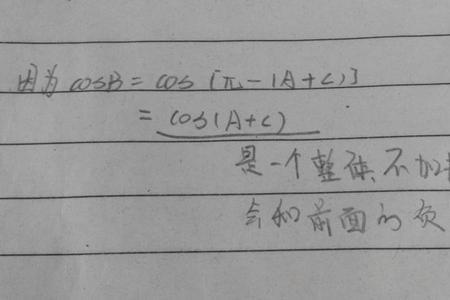 因为 cosB = cos [π-(A+C)]
= cos(A+C)
是一个整体不加
会和前面的负